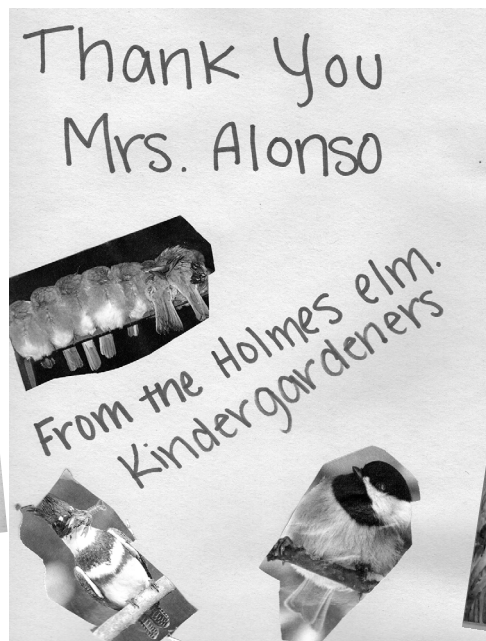 Thank You
Mrs. Alonso
From the Holmes elm.
Kindergardeners